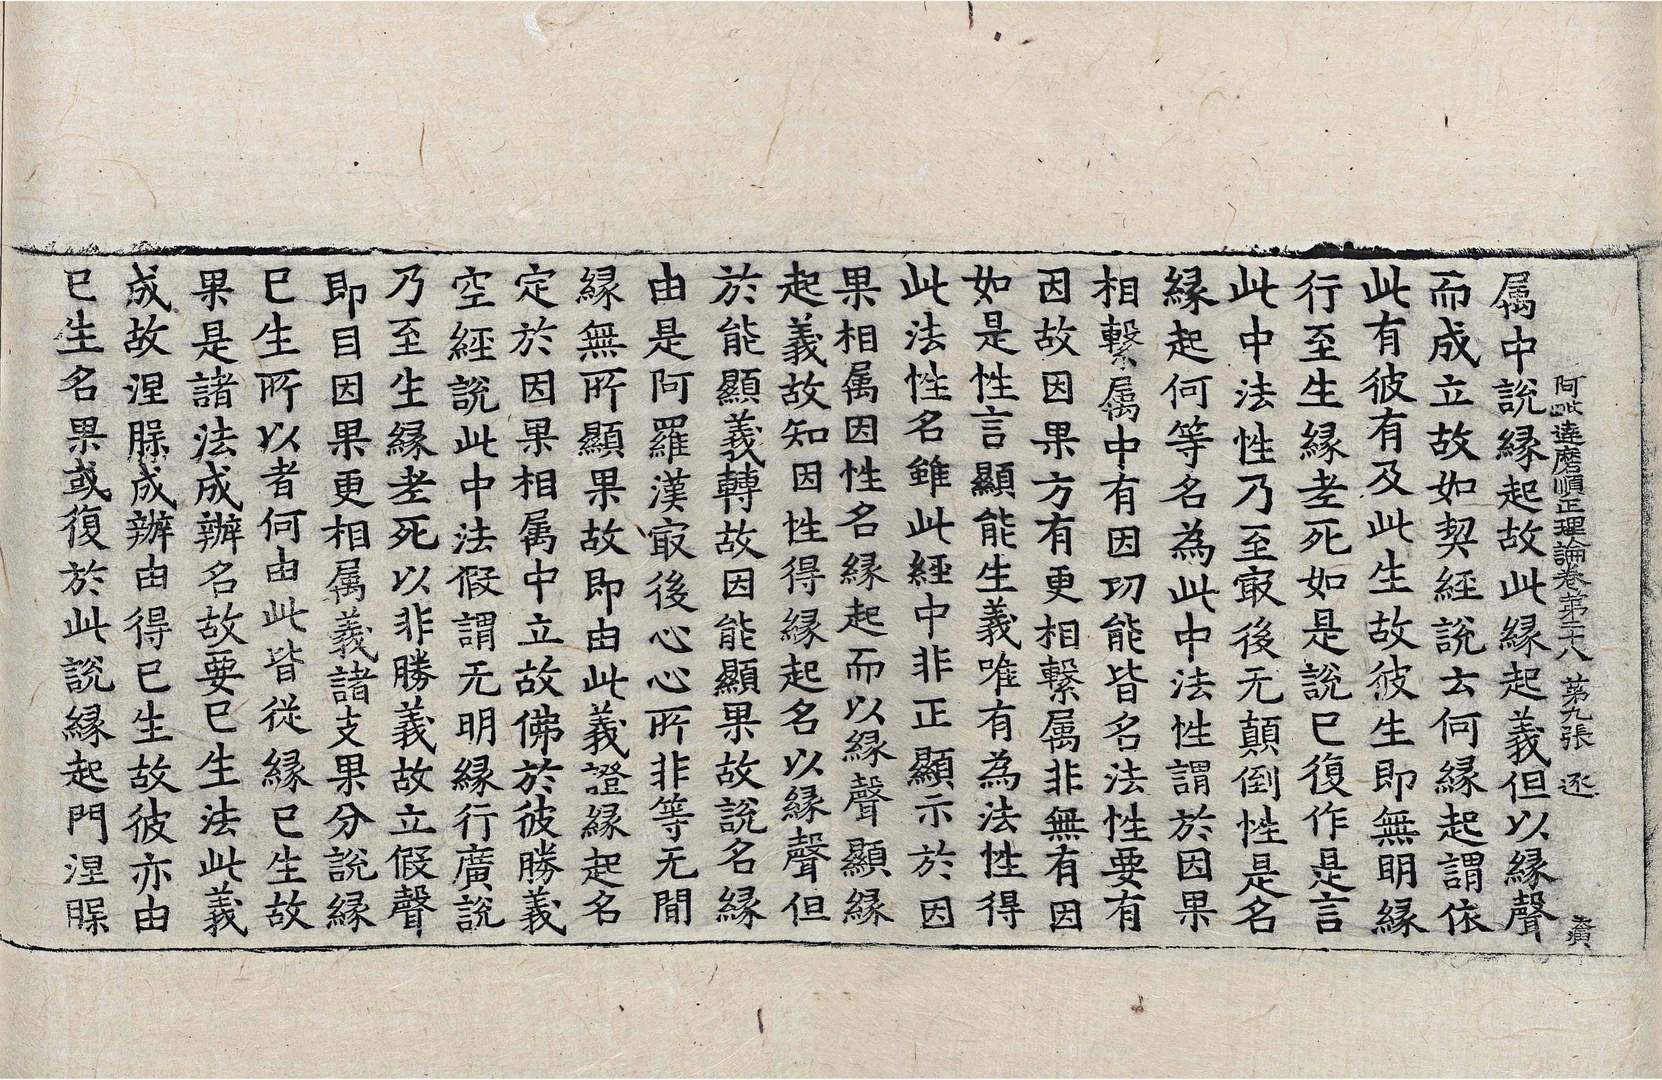 阿毗達磨順正理論卷第二十八 第九張 逐
属中說緣起故此緣起義但以緣聲
而成立故如契經說云何緣起謂依
此有彼有及此生故彼生即無明緣
行至生緣老死如是說已復作是言
此中法性乃至㝡後无顛倒性是名
緣起何等名為此中法性謂於因果
相繫属中有因功能皆名法性要有
因故因果方有更相繫属非無有因
如是性言顯能生義唯有為法性得
此法性名雖此經中非正顯示於因
果相属因性名緣起而以緣聲顯緣
起義故知因性得緣起名以緣聲但
於能顯義轉故因能顯果故說名緣
由是阿羅漢㝡後心心所非等无間
緣無所顯果故即由此義證緣起名
定於因果相属中立故佛於彼勝義
空經說此中法假謂无明緣行廣說
乃至生緣老死以非勝義故立假聲
即目因果更相属義諸支果分說緣
已生所以者何由此皆從緣已生故
果是諸法成辦名故要已生法此義
成故涅槃成辦由得已生故彼亦由
已生名果或復於此說緣起門涅槃